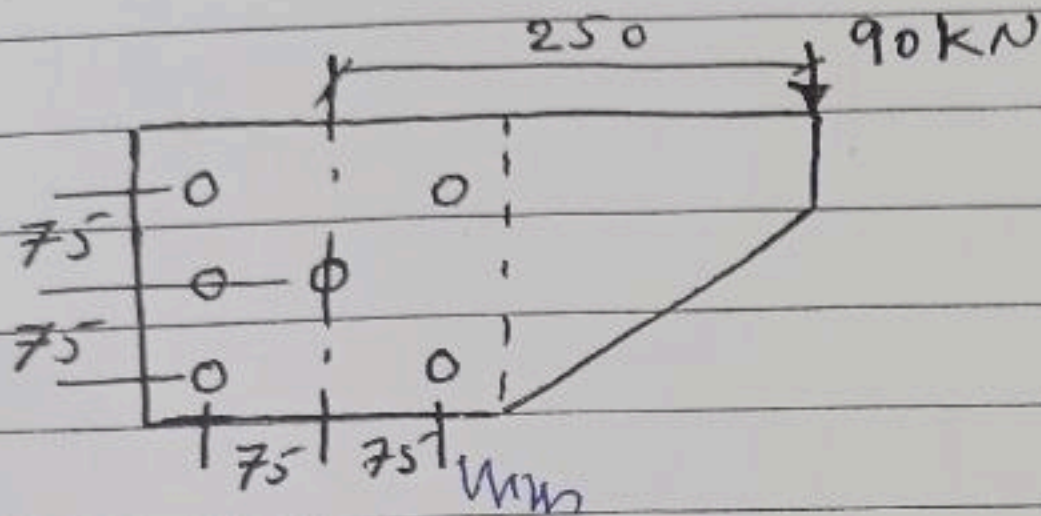 250 90kN
75
75
75 75 mm